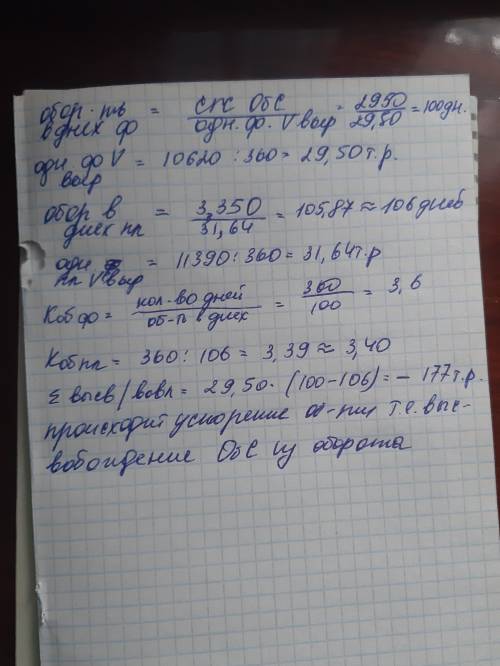 обор-ть в днях ф = СГС ОбС / одн. ф. V выр = 2950 / 29,50 = 100дн.
одн. ф V выр = 10620 : 360 = 29,50 т.р.
обор в днех пл = 3,350 / 31,64 = 105,87 ≈ 106 дней
одн пл V выр = 11390 : 360 = 31,64 т.р
Коб ф = кол-во дней / об-ть в днех = 360 / 100 = 3,6
Коб пл = 360 : 106 = 3,39 ≈ 3,40
Σ высв/вовл = 29,50 · (100-106) = - 177 т.р.
происходит ускорение об-ти т.е. выс-
вобождение ОбС из оборота